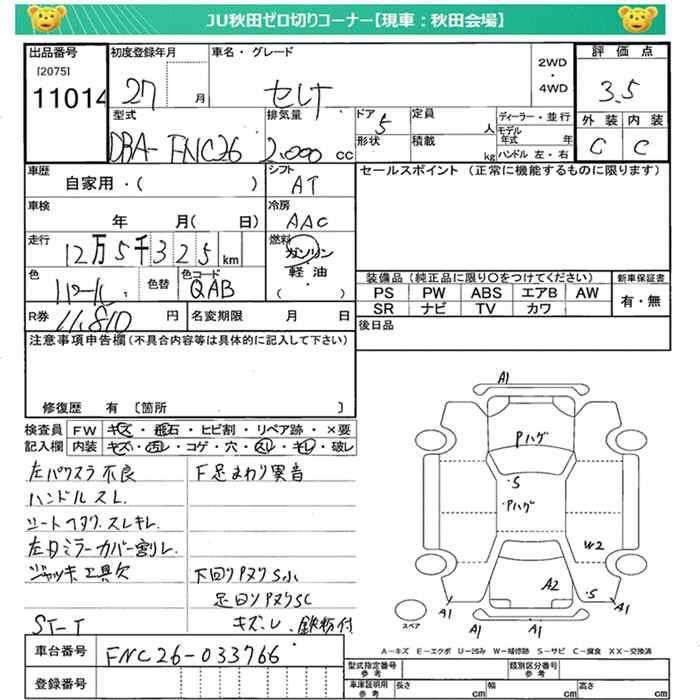 JU秋田ゼロ切りコーナー【現車：秋田会場】
出品番号
[2075]
11014
初度登録年月
27 月
車名・グレード
セレナ
2WD
・
4WD
評価点
3.5
外装 内装
C C
型式
DBA-FNC26
排気量
2.000 cc
ドア
5
形状
定員
人
積載
kg
ディーラー・並行
モデル年式 年
ハンドル 左・右
車歴
自家用・( )
シフト
AT
車検
年 月( 日)
冷房
AAC
走行
12万5千325km
燃料
ガソリン
軽油
( )
色
パール
色替
色コード
QAB
R券
11,810 円
名変期限 月 日
セールスポイント (正常に機能するものに限ります)
装備品 (純正品に限り○をつけてください)
PS PW ABS エアB AW
SR ナビ TV カワ
新車保証書
有・無
後日品
注意事項申告欄(不具合内容等は具体的に記入して下さい)
修復歴 有 〔箇所 〕
検査員記入欄
FW キズ・飛石・ヒビ割・リペア跡・×要
内装 キズ・汚レ・コゲ・穴・スレ・キレ・破レ
左パワスラ不良
ハンドルスレ
シートヘタリ.スレキレ
左ドミラーカバー割レ
ジャッキ工具欠
ST-T
下足まわり異音
下回りPヌリS小
足回りPヌリSC
キズ.レ.鉄粉付
A1
Pハゲ
・S
Pハゲ
W2
A2
・S
A1
A1
A1
A1
スペア
A－キズ E－エクボ U－凹み W－補修跡 S－サビ C－腐食 XX－交換済
車台番号
FNC26-033766
登録番号
型式指定番号
参考
類別区分番号
参考
車庫証明用
参考
長さ cm
幅 cm
高さ cm